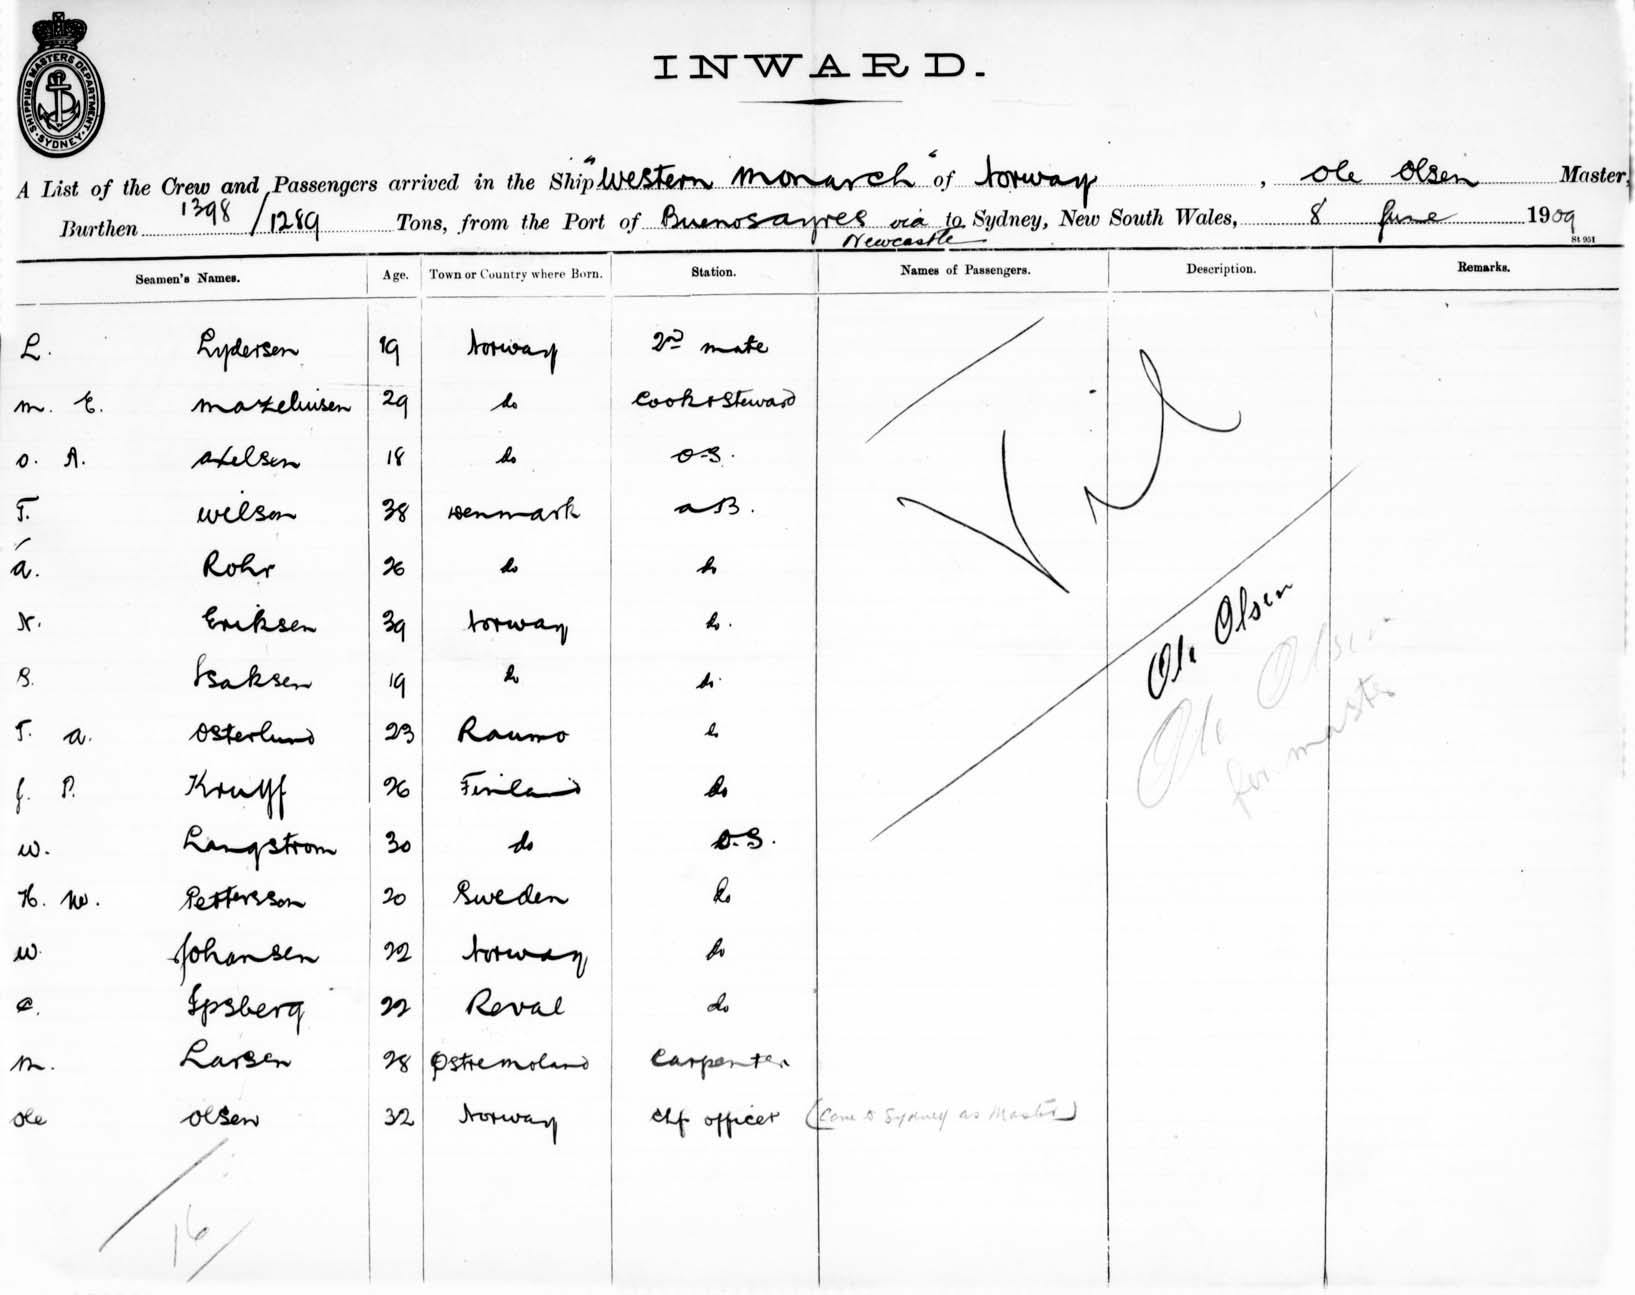 SHIPPING MASTERS DEPARTMENT. SYDNEY.
INWARD.
A List of the Crew and Passengers arrived in the Ship "Western Monarch" of Norway, Ole Olsen Master,
Burthen 1398/1289 Tons, from the Port of Buenos ayres via to Sydney, New South Wales, 8 June 1909
Newcastle
St 951
Seamen's Names. Age. Town or Country where Born. Station. Names of Passengers. Description. Remarks.
L. Lydersen 19 Norway 2nd mate
M. E. 29 do Cook & Steward
O. A. Axelsen 18 do O.S.
T. Wilson 38 Denmark A B.
A. Rohr 26 do do
N. Eriksen 39 Norway do.
S. Isaksen 19 do do
T. A. Osterlund 23 Raumo do
J. P. Kruyff 26 Finland do
W. Langstrom 30 do O.S.
H. W. Pettersson 20 Sweden do
W. Johansen 22 Norway do
C. Ipsberg 22 Reval do
M. Larsen 28 Carpenter
Ole Olsen 32 Norway Chf officer (Came to Sydney as Master)
Nil
Ole Olsen
Ole Olsen
for master
16